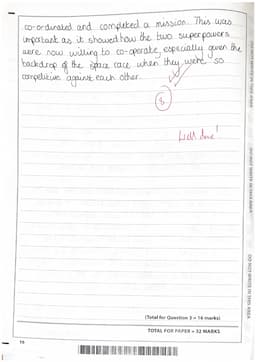 co-ordinated and completed a mission. This was
important as it showed how the two superpowers
were now willing to co-operate, especially given the
backdrop of the space race when they were so
competitive against each other.
8
Well done!
(Total for Question 3 = 16 marks)
TOTAL FOR PAPER = 32 MARKS
16
DO NOT WRITE IN THIS AREA
DO NOT WRITE IN THIS AREA
DO NOT WRITE IN THIS AREA